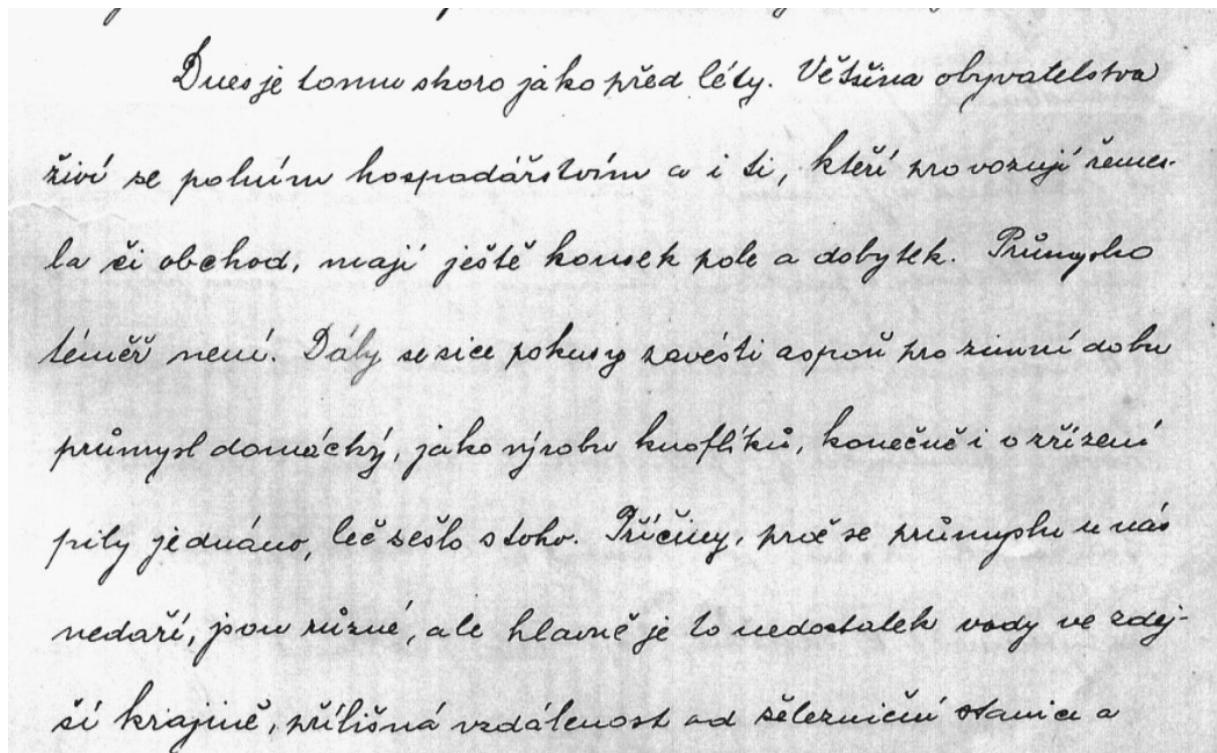 Dnes je tomu skoro jako před léty. Většina obyvatelstva
živí se polním hospodářstvím a i ti, kteří provozují řemes-
la či obchod, mají ještě kousek pole a dobytek. Průmyslu
téměř není. Dály se sice pokusy zavésti aspoň pro zimní dobu
průmysl domácký, jako výrobu knoflíků, konečně i o zřízení
pily jednáno, leč sešlo s toho. Příčiny, proč se průmyslu u nás
nedaří, jsou různé, ale hlavně je to nedostatek vody ve zdej-
ší krajině, přílišná vzdálenost od železniční stanice a